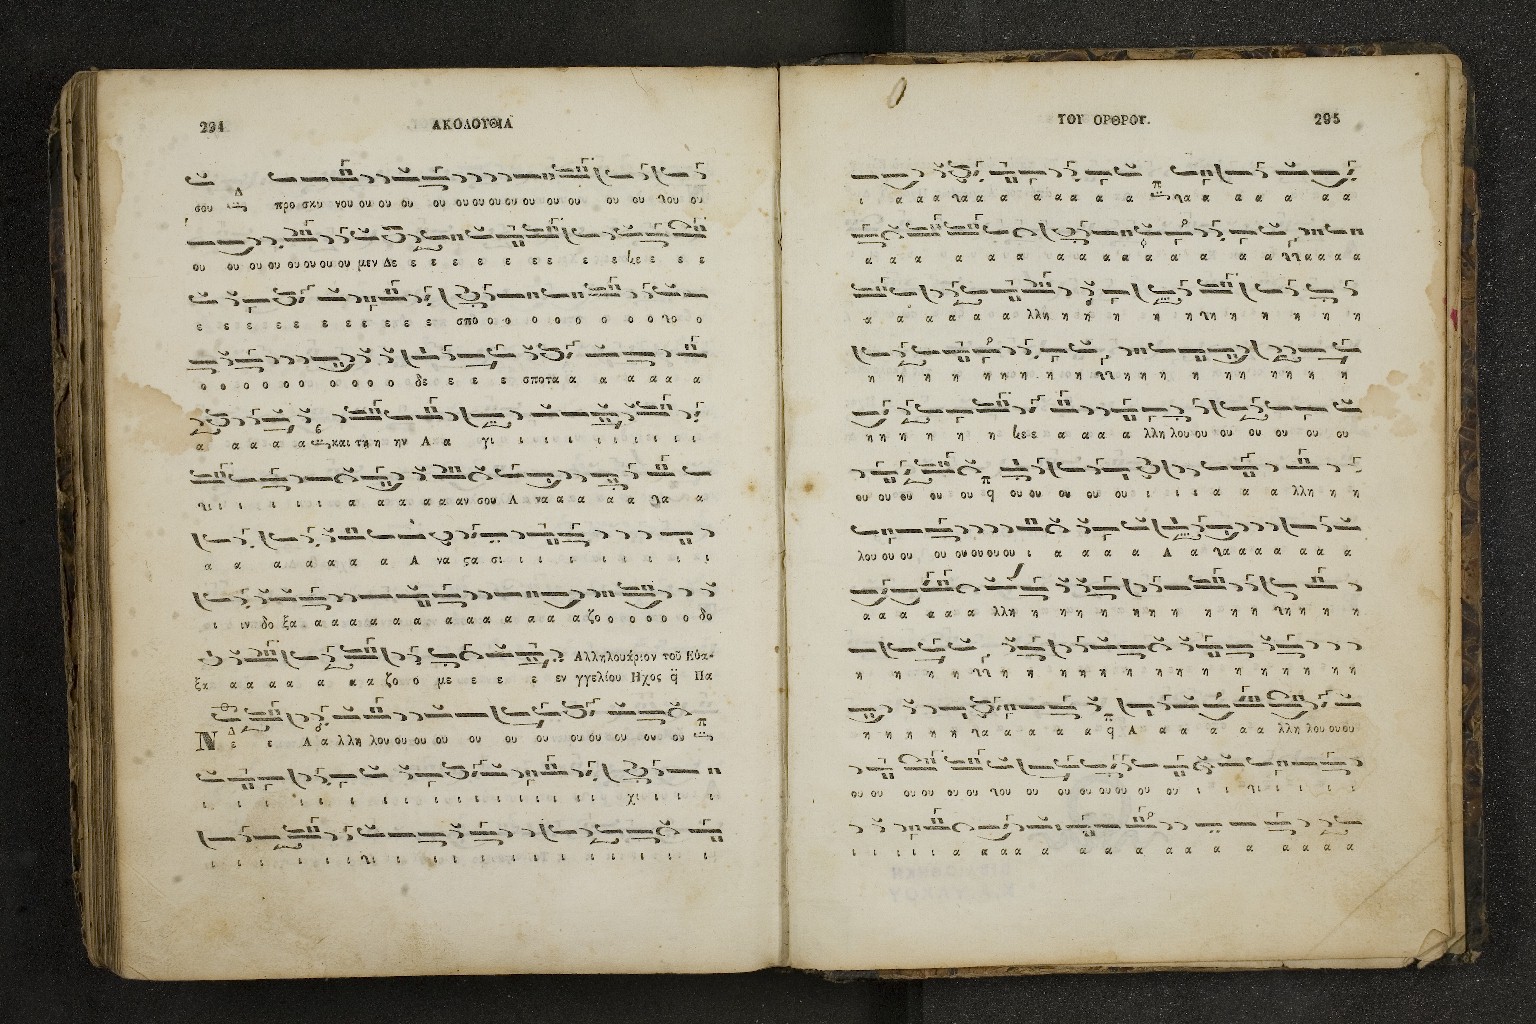 294 ΑΚΟΛΟΥΘΙΑ
σου προ σκυ νου ου ου ου ου ου ου ου ου ου ου ου ου ου ου χου ου
ου ου ου ου ου ου ου ου μεν Δε ε ε ε ε ε ε ε ε ε ε ε ε
ε ε ε ε ε ε ε ε ε ε ε ε σπο ο ο ο ο ο ο ο ο χο ο
ο ο ο ο ο ο ο ο ο ο ο δε ε ε ε ε σποτα α α α α α α
α α α α α και τη η ην Α α γι ι ι ι ι ι ι ι ι ι
χι ι ι ι ι ι α α α α α αν σου Α να α α α α χα α
α α α α α α α Α να ςα σι ι ι ι ι ι ι ι ι
ι ιν δο ξα α α α α α α α α α α α α α α ζο ο ο ο ο ο δο
Αλληλουάριον τοῦ Εὐα-
ξα α α α α α α α ζο ο με ε ε ε εν γγελίου Ηχος q̈ Πα
Νε ε Α α λλη λου ου ου ου ου ου ου ου ου ου ου ου
ι ι ι ι ι ι ι ι ι ι ι ι ι ι ι χι ι ι ι
ι ι ι ι ι ι χι ι ι ι ι ι ι ι ι ι ι ι ι
ΤΟΥ ΟΡΘΡΟΥ. 295
ι α α α χα α α α α α α α α χα α α α α α α
α α α α α α α α α α α α α α α χα α α α
α α α α α α λλη η η η η χη η η η η η
η η η η η η η η χη η η η η η η η η η
η η η η η η κε ε α α α α λλη λου ου ου ου ου ου ου
ου ου ου ου ου q ου ου ου ου ου ι ι ι α α α λλη η η
λου ου ου ου ου ου ου ου ι α α α α Α α χα α α α α α α
α α α α α α λλη η η η η η η η η η η χη η η η
η η η η χη η η η η η η η η η η η η η
η η η η η χα α α α α α q Α α α α α α λλη λου ου ου
ου ου ου ου ου ου χου ου ου ου ου ου ου ου ι ι χι ι ι ι
ι ι ι ι ι α α α α α α α α α α α α α α α